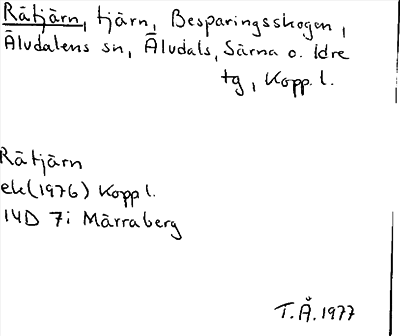 Rätjärn, tjärn, Besparingsskogen,
Älvdalens sn, Älvdals, Särna o. Idre
tg, Kopp. l.
Rätjärn
ek(1976) Kopp l.
14D 7i Märraberg
T.Å. 1977